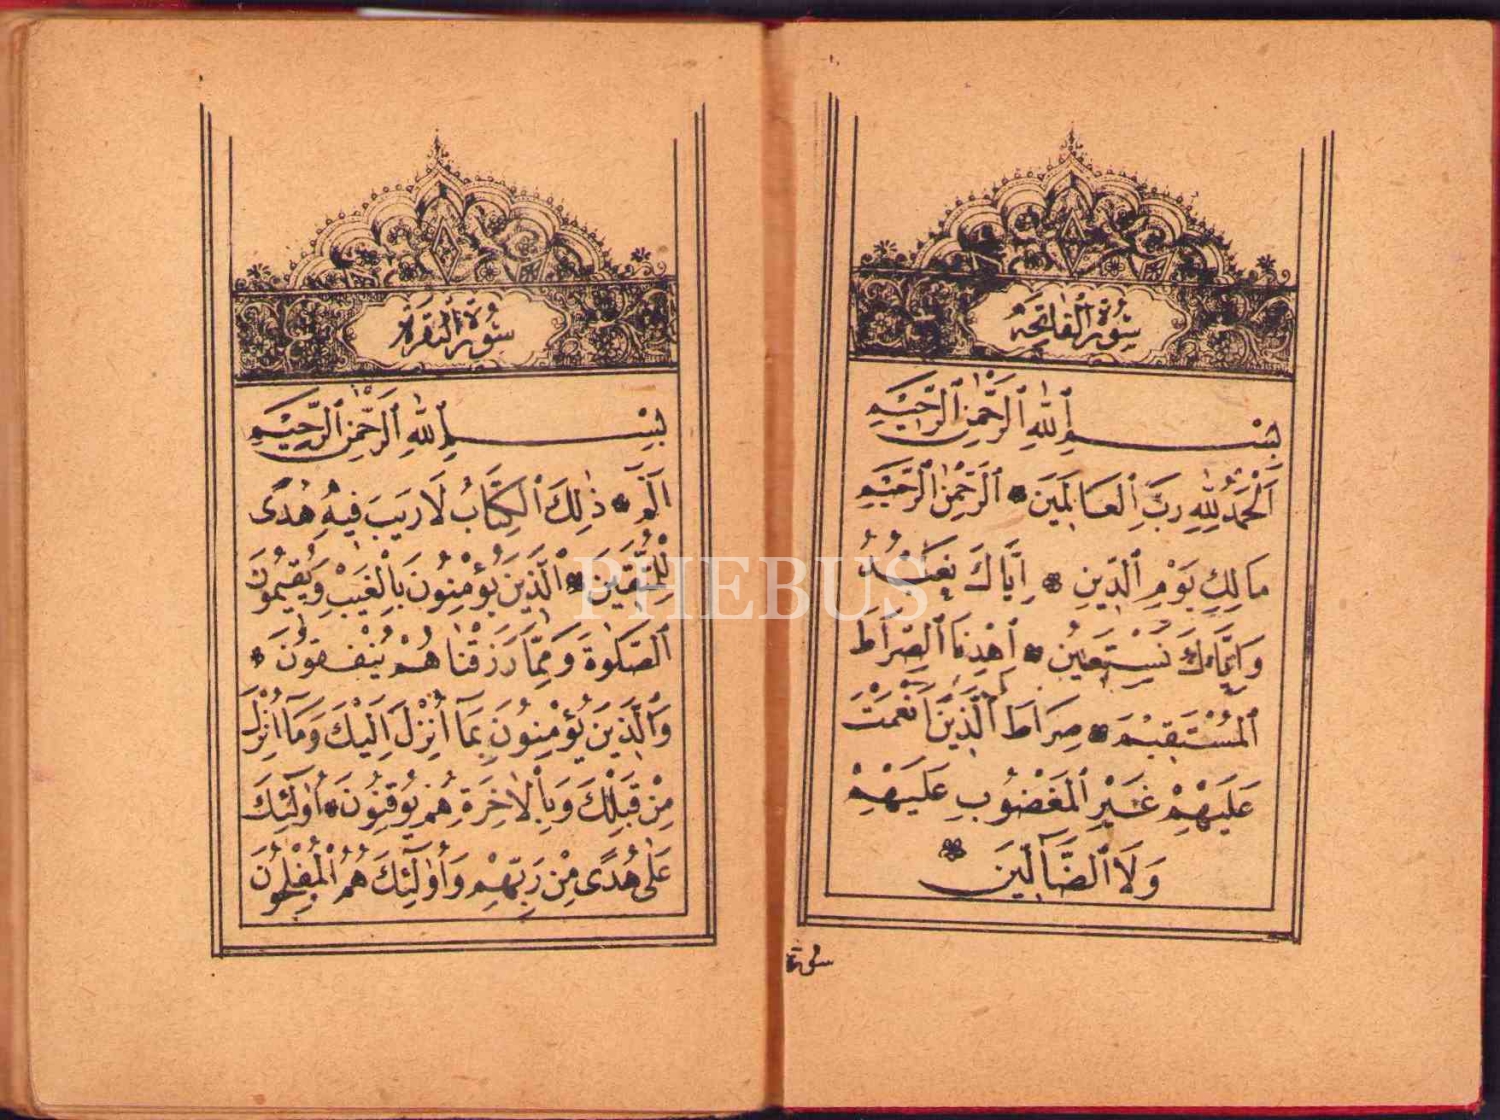 سُورَةُ ٱلْفَاتِحَةِ
بِسْمِ ٱللّٰهِ ٱلرَّحْمٰنِ ٱلرَّحِيمِ
اَلْحَمْدُ لِلّٰهِ رَبِّ الْعَالَمِينَ * اَلرَّحْمٰنِ الرَّحِيمِ
مَالِكِ يَوْمِ الدِّينِ * اِيَّاكَ نَعْبُدُ
وَاِيَّاكَ نَسْتَعِينُ * اِهْدِنَا الصِّرَاطَ
الْمُسْتَقِيمَ * صِرَاطَ الَّذِينَ اَنْعَمْتَ
عَلَيْهِمْ غَيْرِ الْمَغْضُوبِ عَلَيْهِمْ
وَلَا الضَّالِّينَ *
سورة
سُورَةُ ٱلْبَقَرَةِ
بِسْمِ ٱللّٰهِ ٱلرَّحْمٰنِ ٱلرَّحِيمِ
الٓمٓ * ذٰلِكَ الْكِتَابُ لَا رَيْبَ فِيهِ هُدًى
لِلْمُتَّقِينَ * اَلَّذِينَ يُؤْمِنُونَ بِالْغَيْبِ وَيُقِيمُونَ
الصَّلٰوةَ وَمِمَّا رَزَقْنَاهُمْ يُنْفِقُونَ *
وَالَّذِينَ يُؤْمِنُونَ بِمَٓا اُنْزِلَ اِلَيْكَ وَمَٓا اُنْزِلَ
مِنْ قَبْلِكَ وَبِالْاٰخِرَةِ هُمْ يُوقِنُونَ * اُولٰٓئِكَ
عَلٰى هُدًى مِنْ رَبِّهِمْ وَاُولٰٓئِكَ هُمُ الْمُفْلِحُونَ
PHEBUS